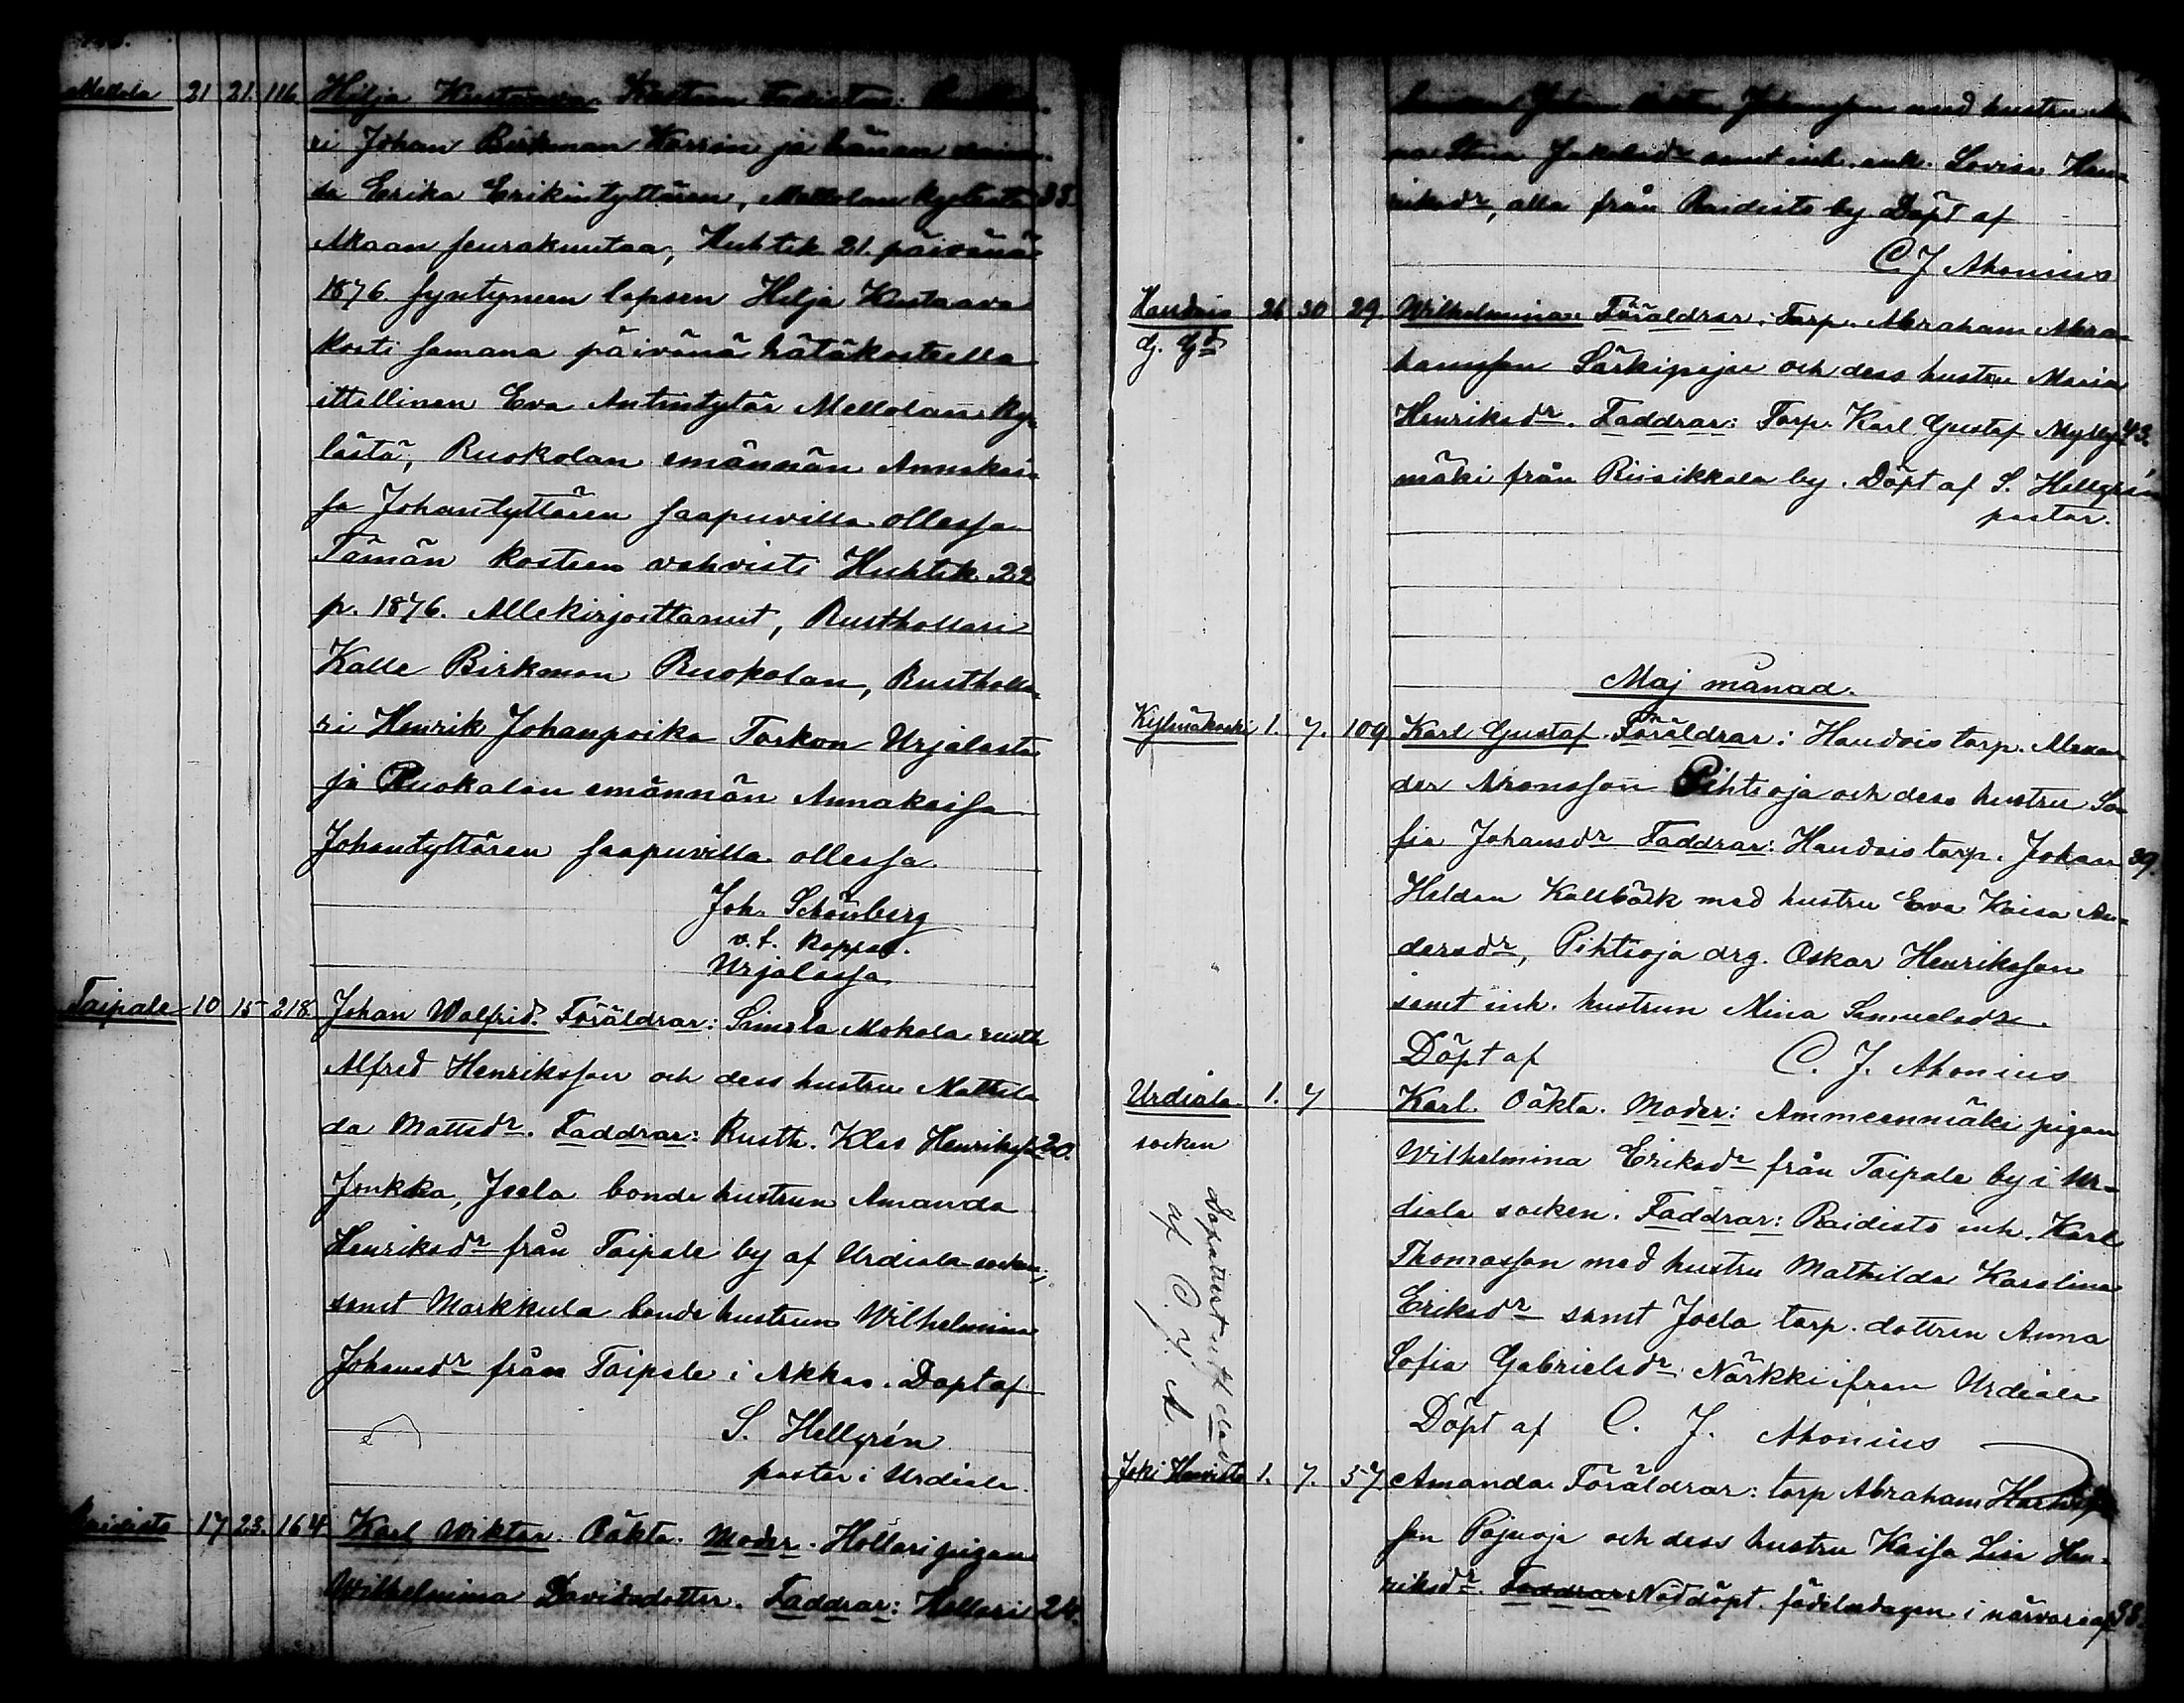 Mellola 21 21. 116 Hilja Kustaava. Kasteen todistus:
ri Johan Birkman Karrin ja hänen vaimon-
sa Erika Erikintyttären, Mellolan kylästä 33.
Akaan seurakuntaa, Huhtik. 21. päivänä
1876 syntyneen lapsen Hilja Kustaava
kasti samana päivänä hätäkasteella
ittellinen Eva Antintytär Mellolan ky-
lästä, Ruokolan emännän Annakai-
sa Johantyttären saapuvilla ollessa
Tämän kasteen vahvisti Huhtik. 22
p. 1876. Allekirjoittanut, Rusthollari
Kalle Birkman Ruokolan, Rustholla-
ri Henrik Johanpoika Torkon Urjalasta
ja Ruokolan emännän Annakaisa
Johantyttären saapuvilla ollessa.
Joh. Schönberg
v.t. kappal.
Urjalassa
Taipale 10 15 218 Johan Walfrid. Föräldrar: Simola Mokola rusth
Alfred Henriksson och dess hustru Mathil-
da Mattsdr. Faddrar: Rusth. Klas Henriksson 20.
Jonkka, Joela bondehustrun Amanda
Henriksdr från Taipale by af Urdiala socken,
samt Markkula bondehustrun Wilhelmina
Johansdr från Taipale i Akkas. Döpt af
S. Hellgrén
pastor i Urdiala.
Raidisto 17 23. 164 Karl Wiktor. Oäkta. Moder. Hollari pigan
Wilhelmina Davidsdotter. Faddrar: Hollari 24.
Johan Johansson med hustru An-
na Stina Jakobsdr samt inh. enk. Lovisa Hen-
riksdr, alla från Raidisto by Döpt af
C. J. Ahonius
Haudois 26 30 29 Wilhelmina. Föräldrar: Torp. Abraham Abra-
hamsson Särkipaja och dess hustru Maria
Henriksdr. Faddrar: Torp. Karl Gustaf Mylly- 43.
mäki från Riisikkala by. Döpt af S. Hellgrén
pastor.
Maj månad.
Kylmäkoski 1. 7. 109 Karl Gustaf. Föräldrar: Haudois torp. Alexan-
der Aronsson Pihtioja och dess hustru So-
fia Johansdr Faddrar: Haudois torp. Johan 39.
Heldan Kallbäck med hustru Eva Kaisa An-
dersdr, Pihtioja drg. Oskar Henriksson
samt inh. hustrun Mina Samuelsdr.
Döpt af C. J. Ahonius
Urdiala 1. 7 Karl. Oäkta. Moder: Ammeenmäki pigan
socken
Wilhelmina Eriksdr från Taipale by i Ur-
diala socken. Faddrar: Raidisto inh. Karl
Thomasson med hustru Mathilda Karolina
Eriksdr samt Joela torp. dottren Anna
Sofia Gabrielsdr Närkki ifrån Urdiala
Döpt af C. J. Ahonius
Dopattest
af C. J. A.
Joki Hanvisto 1. 7. 57 Amanda. Föräldrar: torp Abraham
son Pajuoja och dess hustru Kaisa Lisa Hen-
riksdr. Faddrar Nöddöpt. födelsedagen i närvaro af 38.